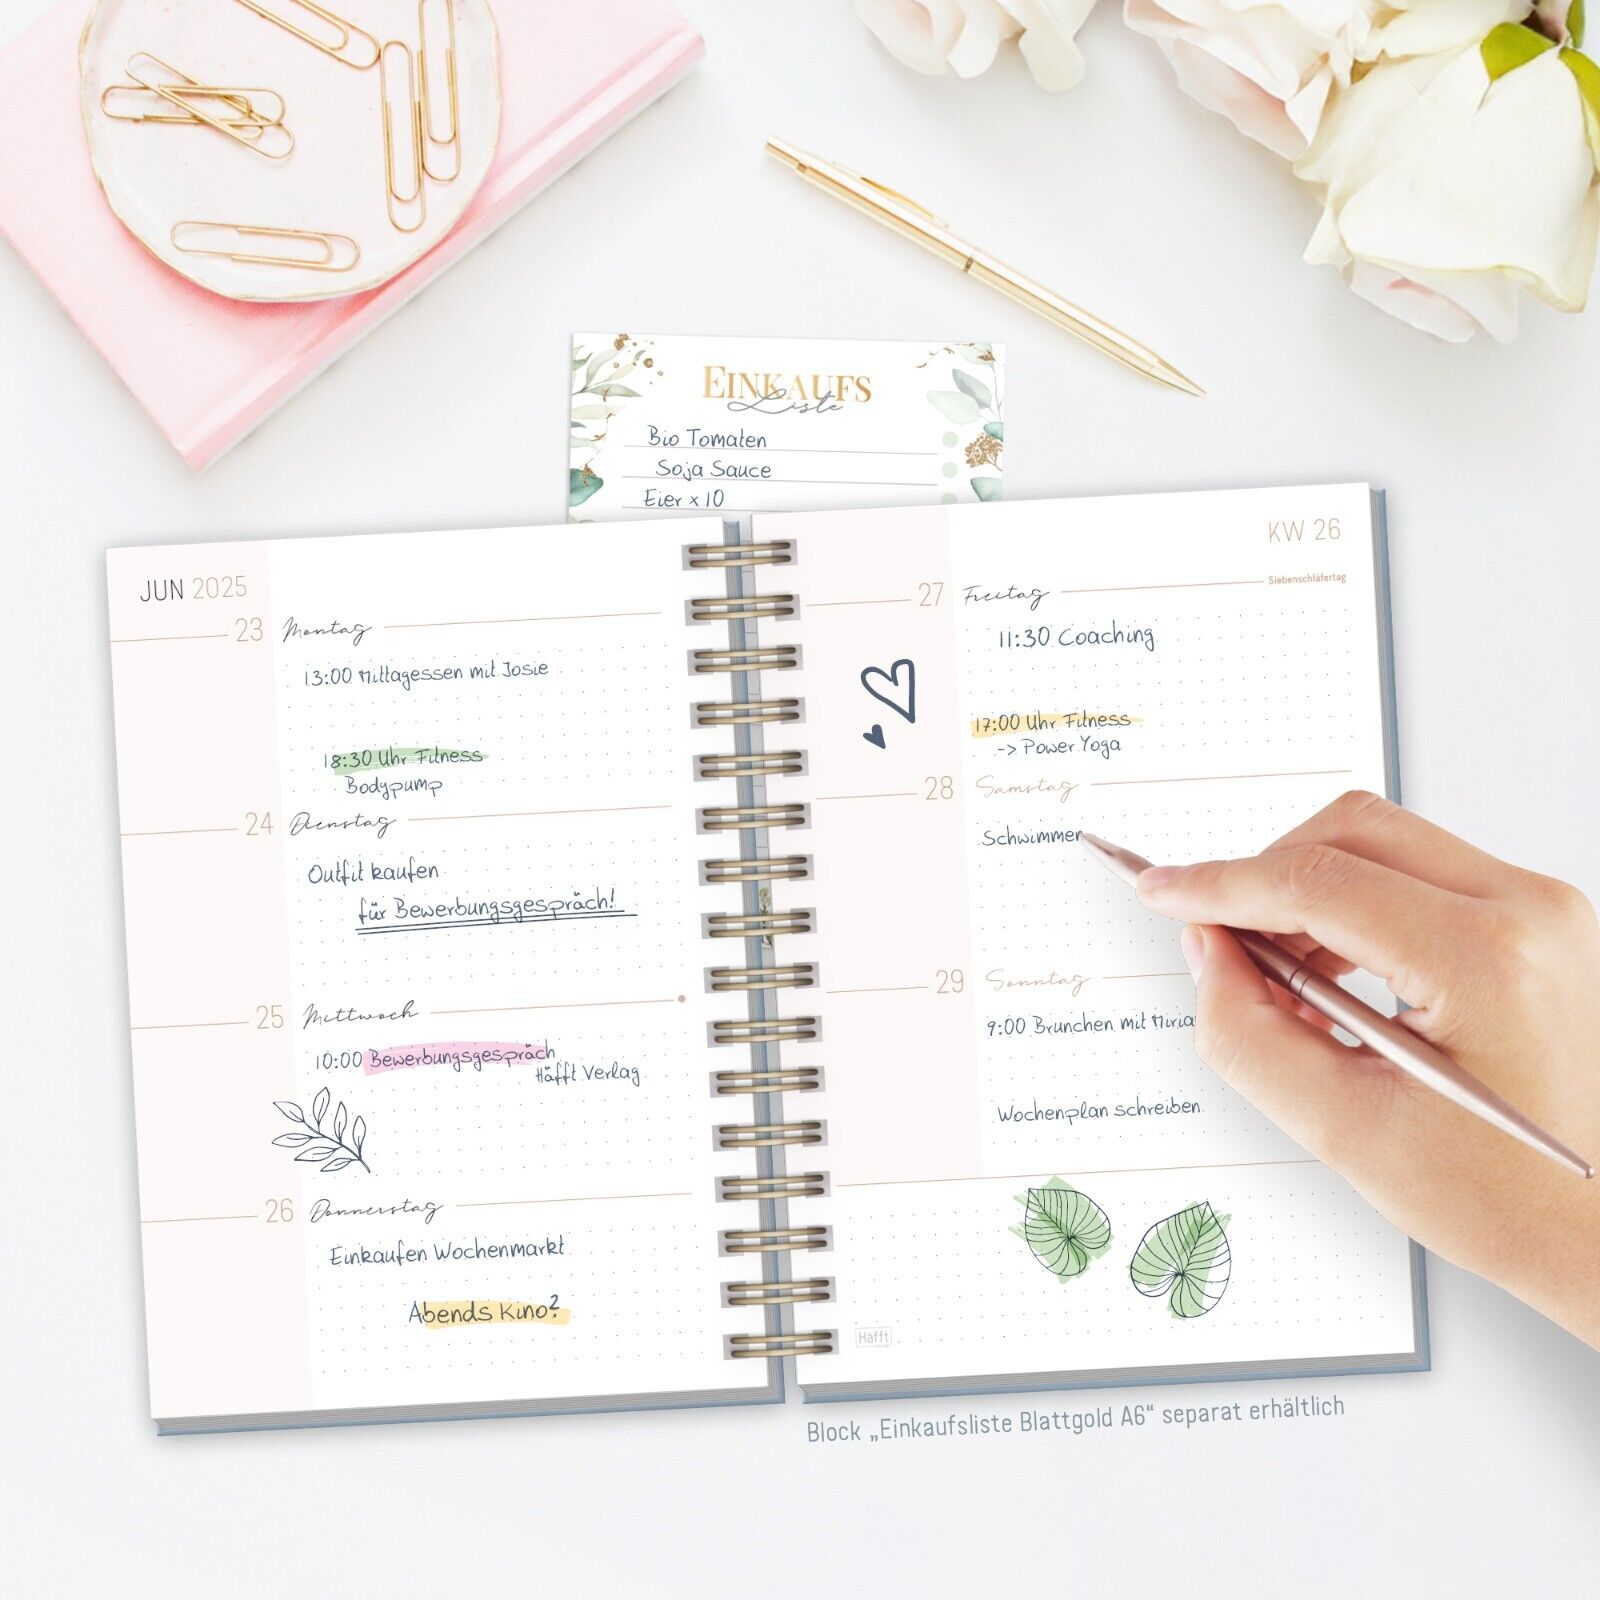 EINKAUFS
Liste
Bio Tomaten
Soja Sauce
Eier x 10
JUN 2025
23 Montag
13:00 Mittagessen mit Josie
18:30 Uhr Fitness
Bodypump
24 Dienstag
Outfit kaufen
für Bewerbungsgespräch!
25 Mittwoch
10:00 Bewerbungsgespräch
Häfft Verlag
26 Donnerstag
Einkaufen Wochenmarkt
Abends Kino?
KW 26
Siebenschläfertag
27 Freitag
11:30 Coaching
17:00 Uhr Fitness
-> Power Yoga
28 Samstag
Schwimmen
29 Sonntag
9:00 Brunchen mit Miria
Wochenplan schreiben
Häfft
Block „Einkaufsliste Blattgold A6“ separat erhältlich